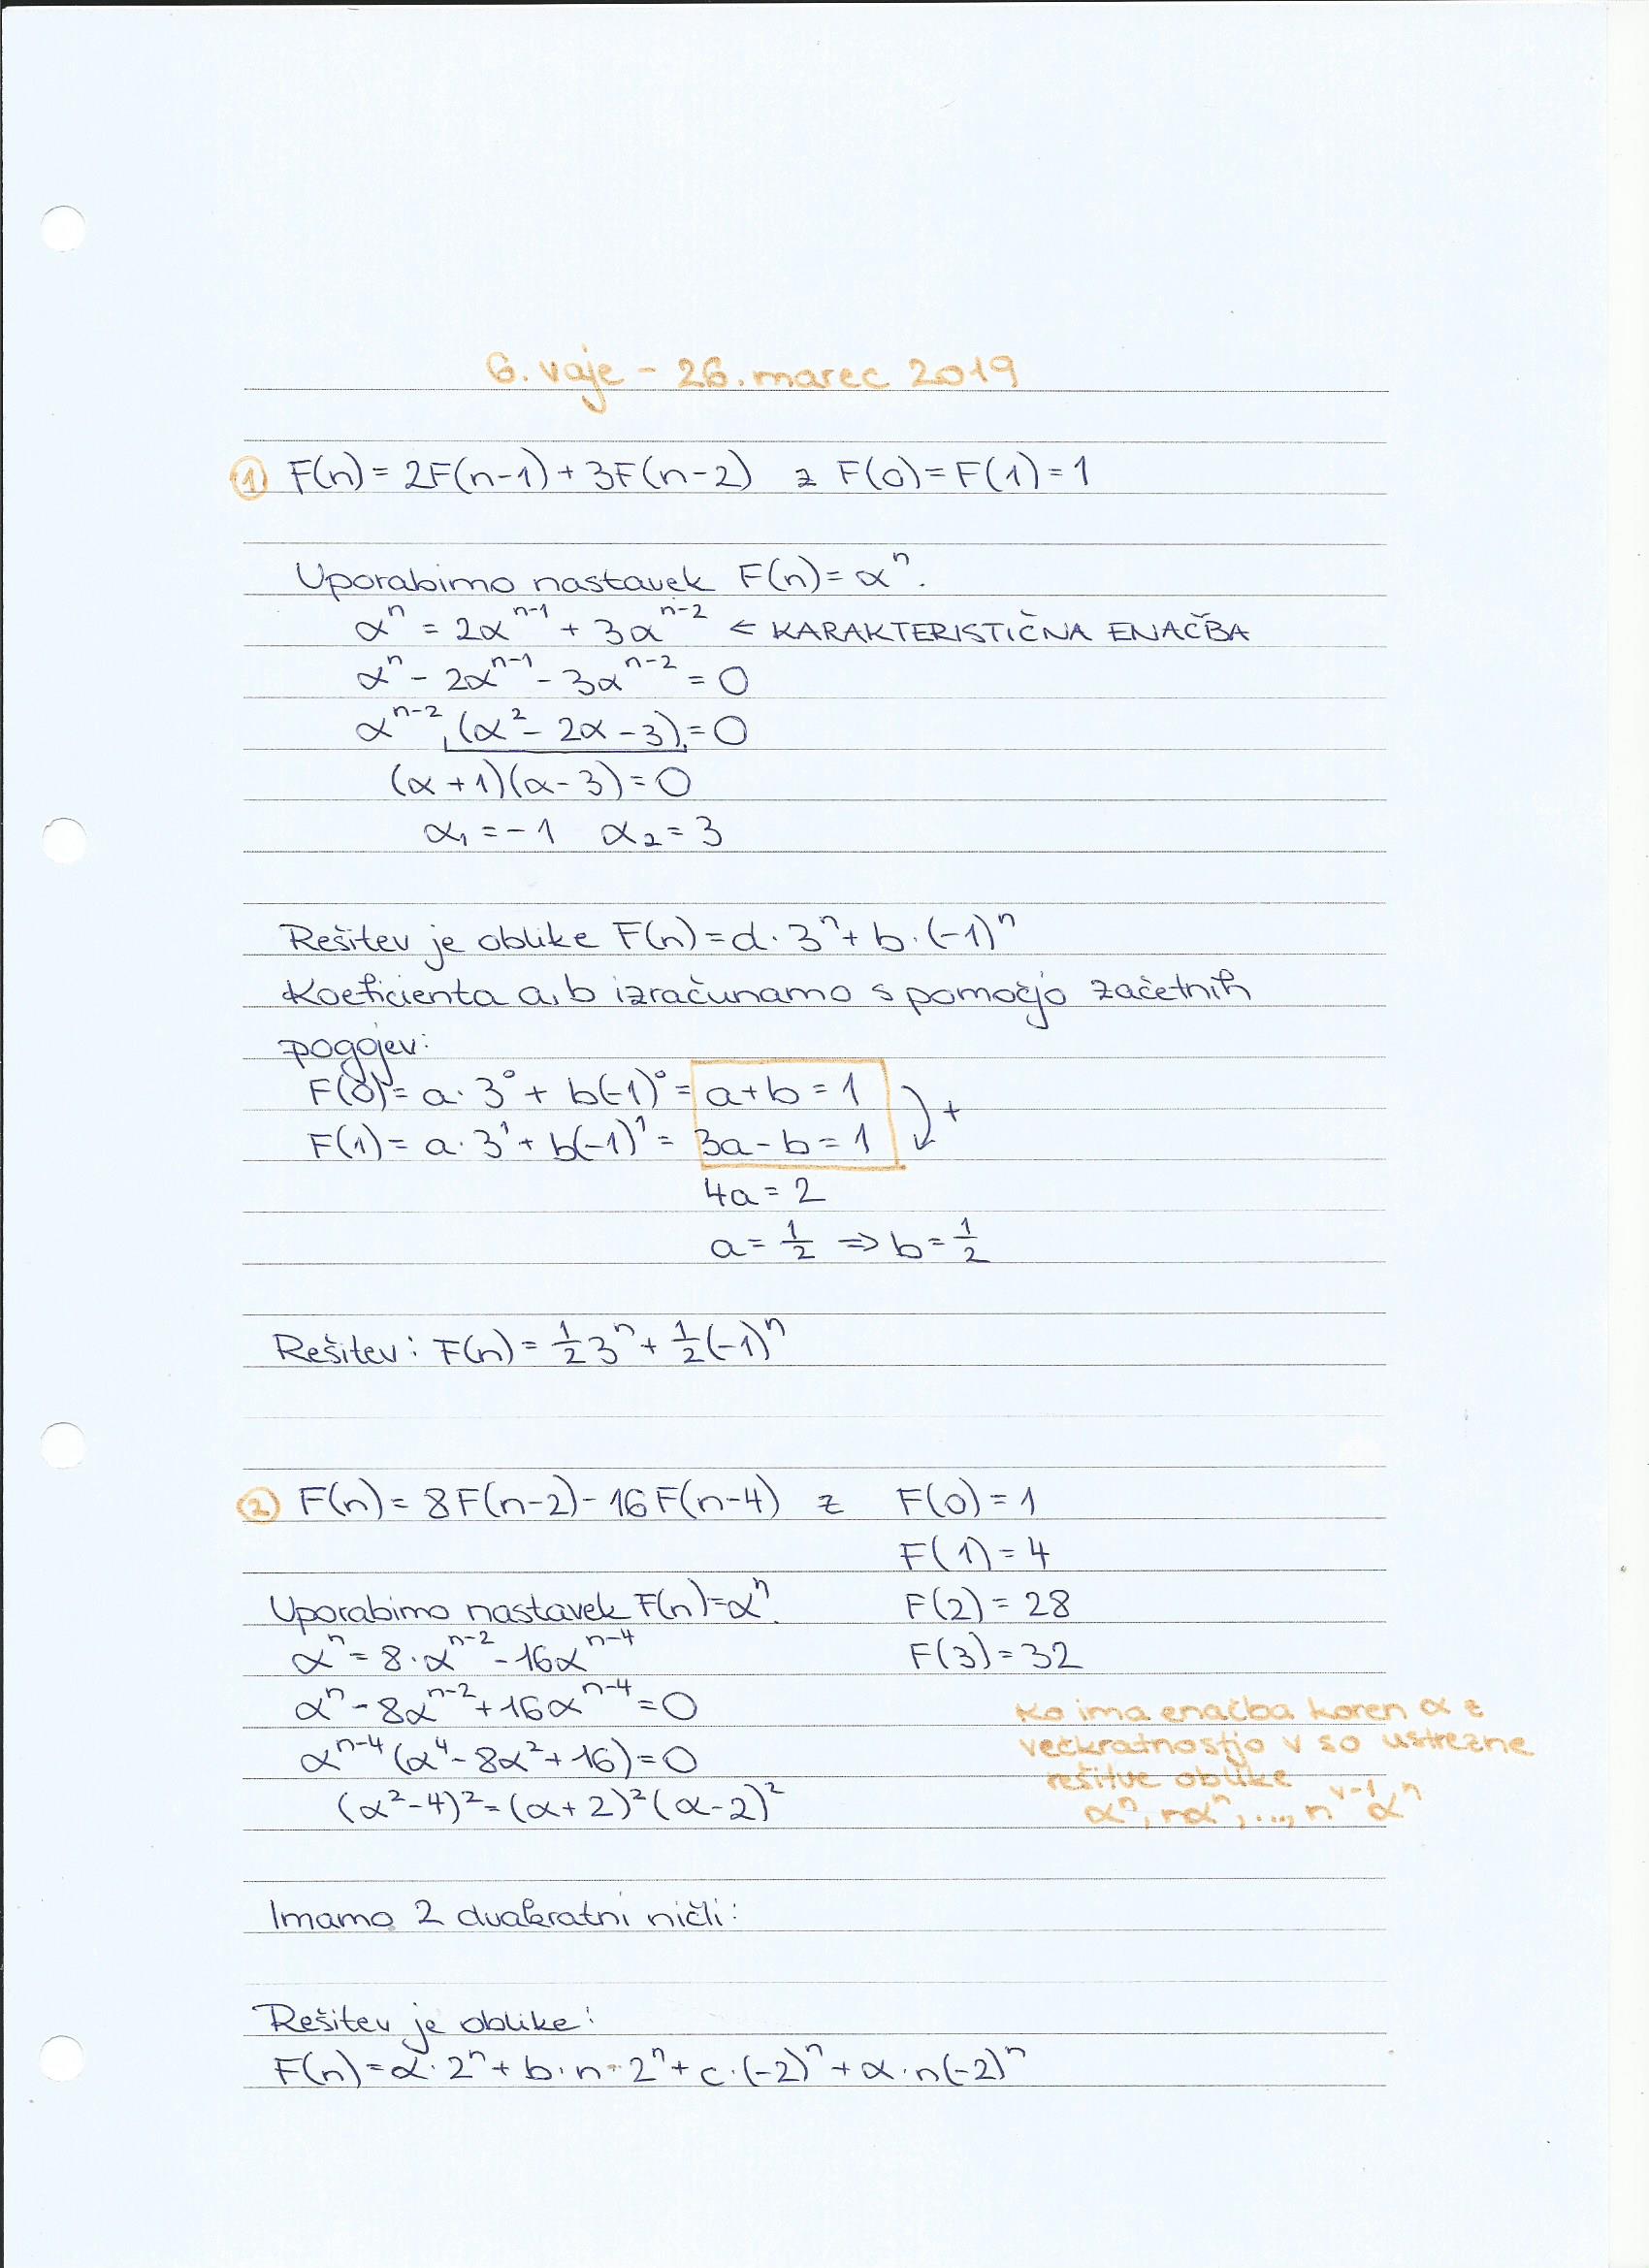 6. vaje - 26. marec 2019
① F(n) = 2F(n-1) + 3F(n-2) z F(0) = F(1) = 1
Uporabimo nastavek F(n) = αⁿ.
αⁿ = 2αⁿ⁻¹ + 3αⁿ⁻² ← KARAKTERISTIČNA ENAČBA
αⁿ - 2αⁿ⁻¹ - 3αⁿ⁻² = 0
αⁿ⁻² (α² - 2α - 3) = 0
(α + 1)(α - 3) = 0
α₁ = -1 α₂ = 3
Rešitev je oblike F(n) = d · 3ⁿ + b · (-1)ⁿ
Koeficienta a, b izračunamo s pomočjo začetnih
pogojev:
F(0) = a · 3⁰ + b(-1)⁰ = a + b = 1
F(1) = a · 3¹ + b(-1)¹ = 3a - b = 1 +
4a = 2
a = 1/2 ⇒ b = 1/2
Rešitev: F(n) = 1/2 3ⁿ + 1/2 (-1)ⁿ
② F(n) = 8F(n-2) - 16F(n-4) z F(0) = 1
F(1) = 4
Uporabimo nastavek F(n) = αⁿ. F(2) = 28
αⁿ = 8 · αⁿ⁻² - 16αⁿ⁻⁴ F(3) = 32
αⁿ - 8αⁿ⁻² + 16αⁿ⁻⁴ = 0
αⁿ⁻⁴ (α⁴ - 8α² + 16) = 0
(α² - 4)² = (α + 2)² (α - 2)²
Ko ima enačba koren α z
večkratnostjo v so ustrezne
rešitve oblike
αⁿ, nαⁿ, ..., nᵛ⁻¹ αⁿ
Imamo 2 dvakratni ničli:
Rešitev je oblike:
F(n) = α · 2ⁿ + b · n · 2ⁿ + c · (-2)ⁿ + α · n(-2)ⁿ